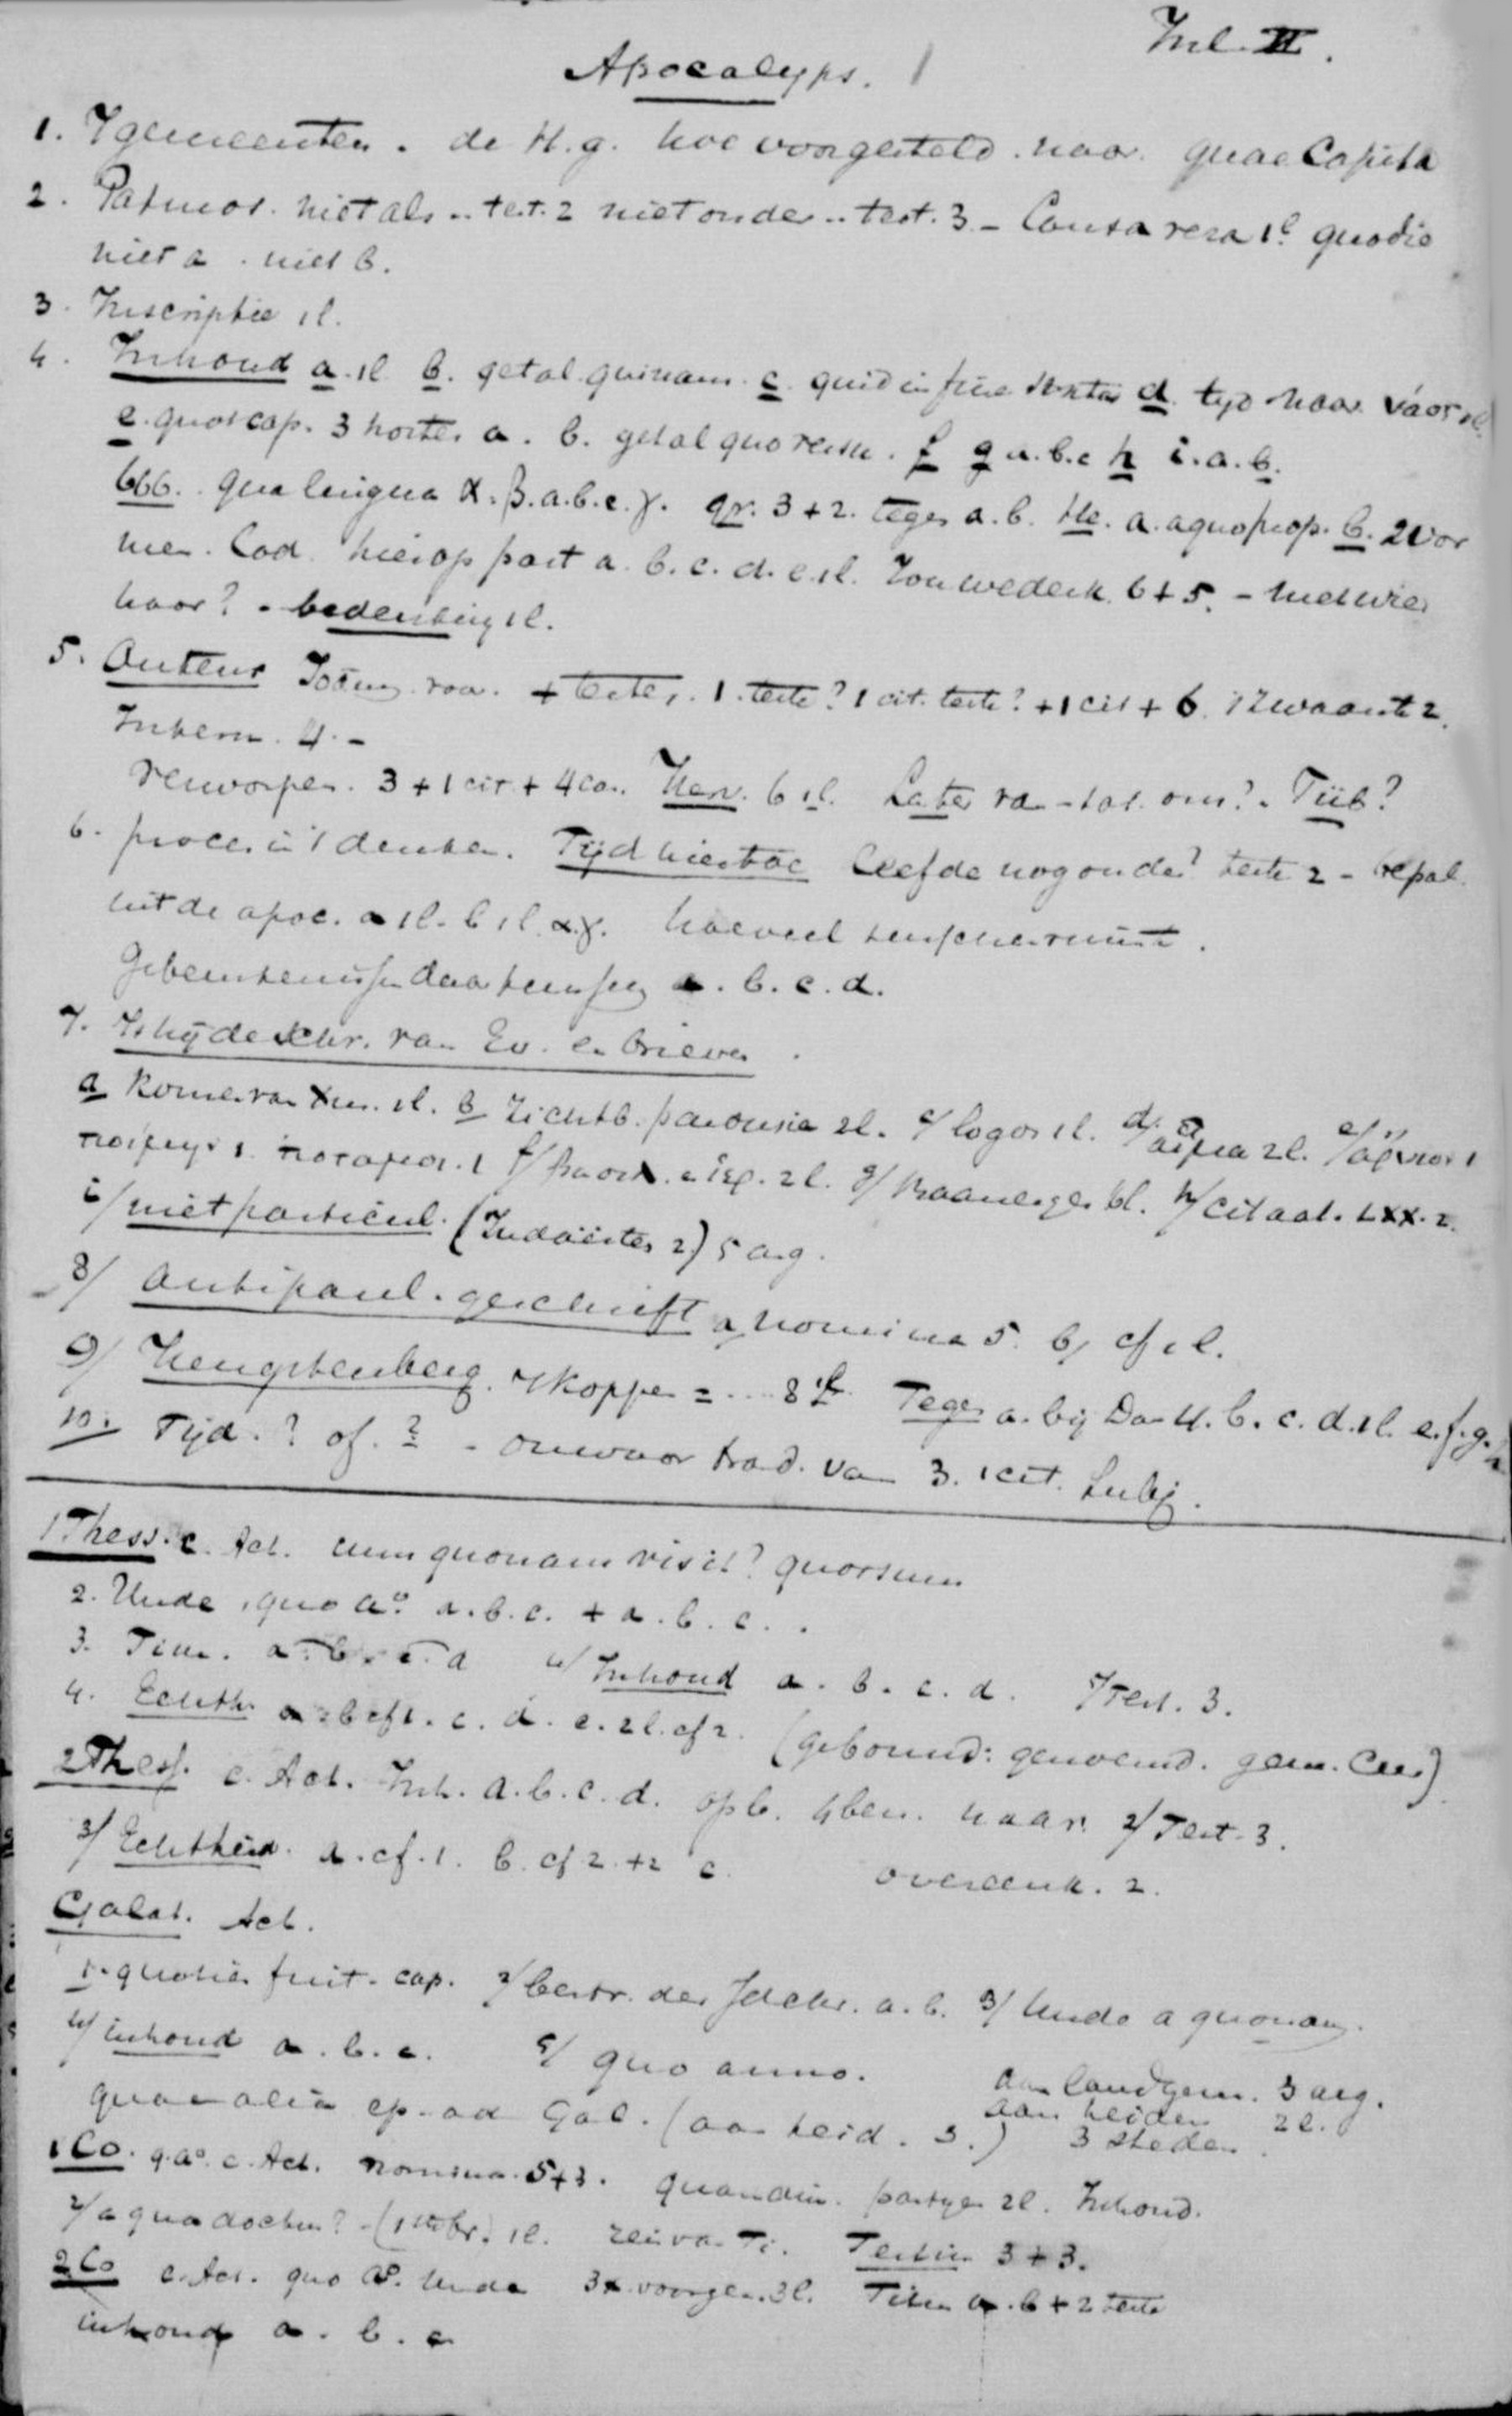 Inl. II.
Apocalyps. 1
1. 7 gemeenten. de H.g. hoe voorgesteld. naar. quae Capita
2. Patmos. niet als .. test. 2 niet onder .. test. 3 - Causa vera 1 l quodie
niet a. niet b.
3. Inscriptie 1 l.
4. Inhoud a. 1 l b. getal quinam. c. quid in fine d. tyd naar. vóor 1 l.
e. quot cap. 3 hostes a. b. getal quo f g a. b. c h i. a. b.
666. qua lingua α. β. a. b. c. γ. gr. 3 + 2. tegen a. b. He. a. a quo prop. b. 2 vor
men. Cod. hierop past a. b. c. d. e. 1 l. Zou wederk. 6 + 5. - met wien
haar? - bedenking 1 l.
5. Auteur + testes. 1. teste? 1 cit. teste? + 1 cit + 6. 12 waant 2.
Intern. 4. -
verworpen. 3 + 1 cit + 4 co. Herv. 6 1 l. Later om? Tüb?
6. proces in 't denken. Tijd hiertoe leefde nog onder? teste 2 - bepal.
uit de apoc. a 1 l. b 1 l. α. γ. hoeveel
Gebeurtenissen daartussen a. b. c. d.
7. Is hij de schr. van Ev. en brieven.
a komen van Xus. 1 l. b zichtb. parousie 2 l. c/ logos 1 l. d/ αἷμα 2 l. e/ ἀρνιον 1
ποιμην 1. ποταμοι. 1 f/ 2 l. g/ 6 l. h/ citaat. LXX. 2.
i/ niet particul. (Judaïsten 2) 5 arg.
8/ antipaul. geschrift a/ nomina 5. b/ cf 1 l.
9/ Hengstenberg. 7 koppen = ... 8 1 l. Tegen a. bij Dan 4. b. c. d. 1 l. e. f. g. h
10. Tijd. ? of. ? - onwaar trad. van 3. 1 cit.
1 Thess. c. Act. cum quonam visit? quorsum
2. Unde, quo a°. a. b. c. + a. b. c. .
3. Tim. a. b. c. d 4/ Inhoud a. b. c. d. 5/ Test. 3.
4. Echth. a 2 b cf 1. c. d. e. 2 l. cf 2. (gebound: genoemd. gem. Cees)
2 Thess. c. Act. Inh. a. b. c. d. opb. 4 ben. naar. 2/ Test. 3.
3/ Echtheid. a. cf. 1. b. cf 2. + 2 c. overeenk. 2.
Galat. Act.
1. quoties fuit. cap. 2/ bestr. der a. b. 3/ Unde a quonam.
4/ inhoud a. b. c. 5/ quo anno. aan landgem. 3 arg.
quae alia ep. ad Gal. (aan heid. 3.) aan heiden 2 l.
3 steden.
1 Co. q. a°. c. Act. nomina. 5 + 3. quandiu. partyen 2 l. Inhoud.
2/ a qua doctum? - (1 ste br.) 1 l. reis van Ti. Testim 3 + 3.
2 Co c. Act. quo a°. Unde 3x voorgen. 3 l. Titus a. b + 2 teste
inhoud a. b. c